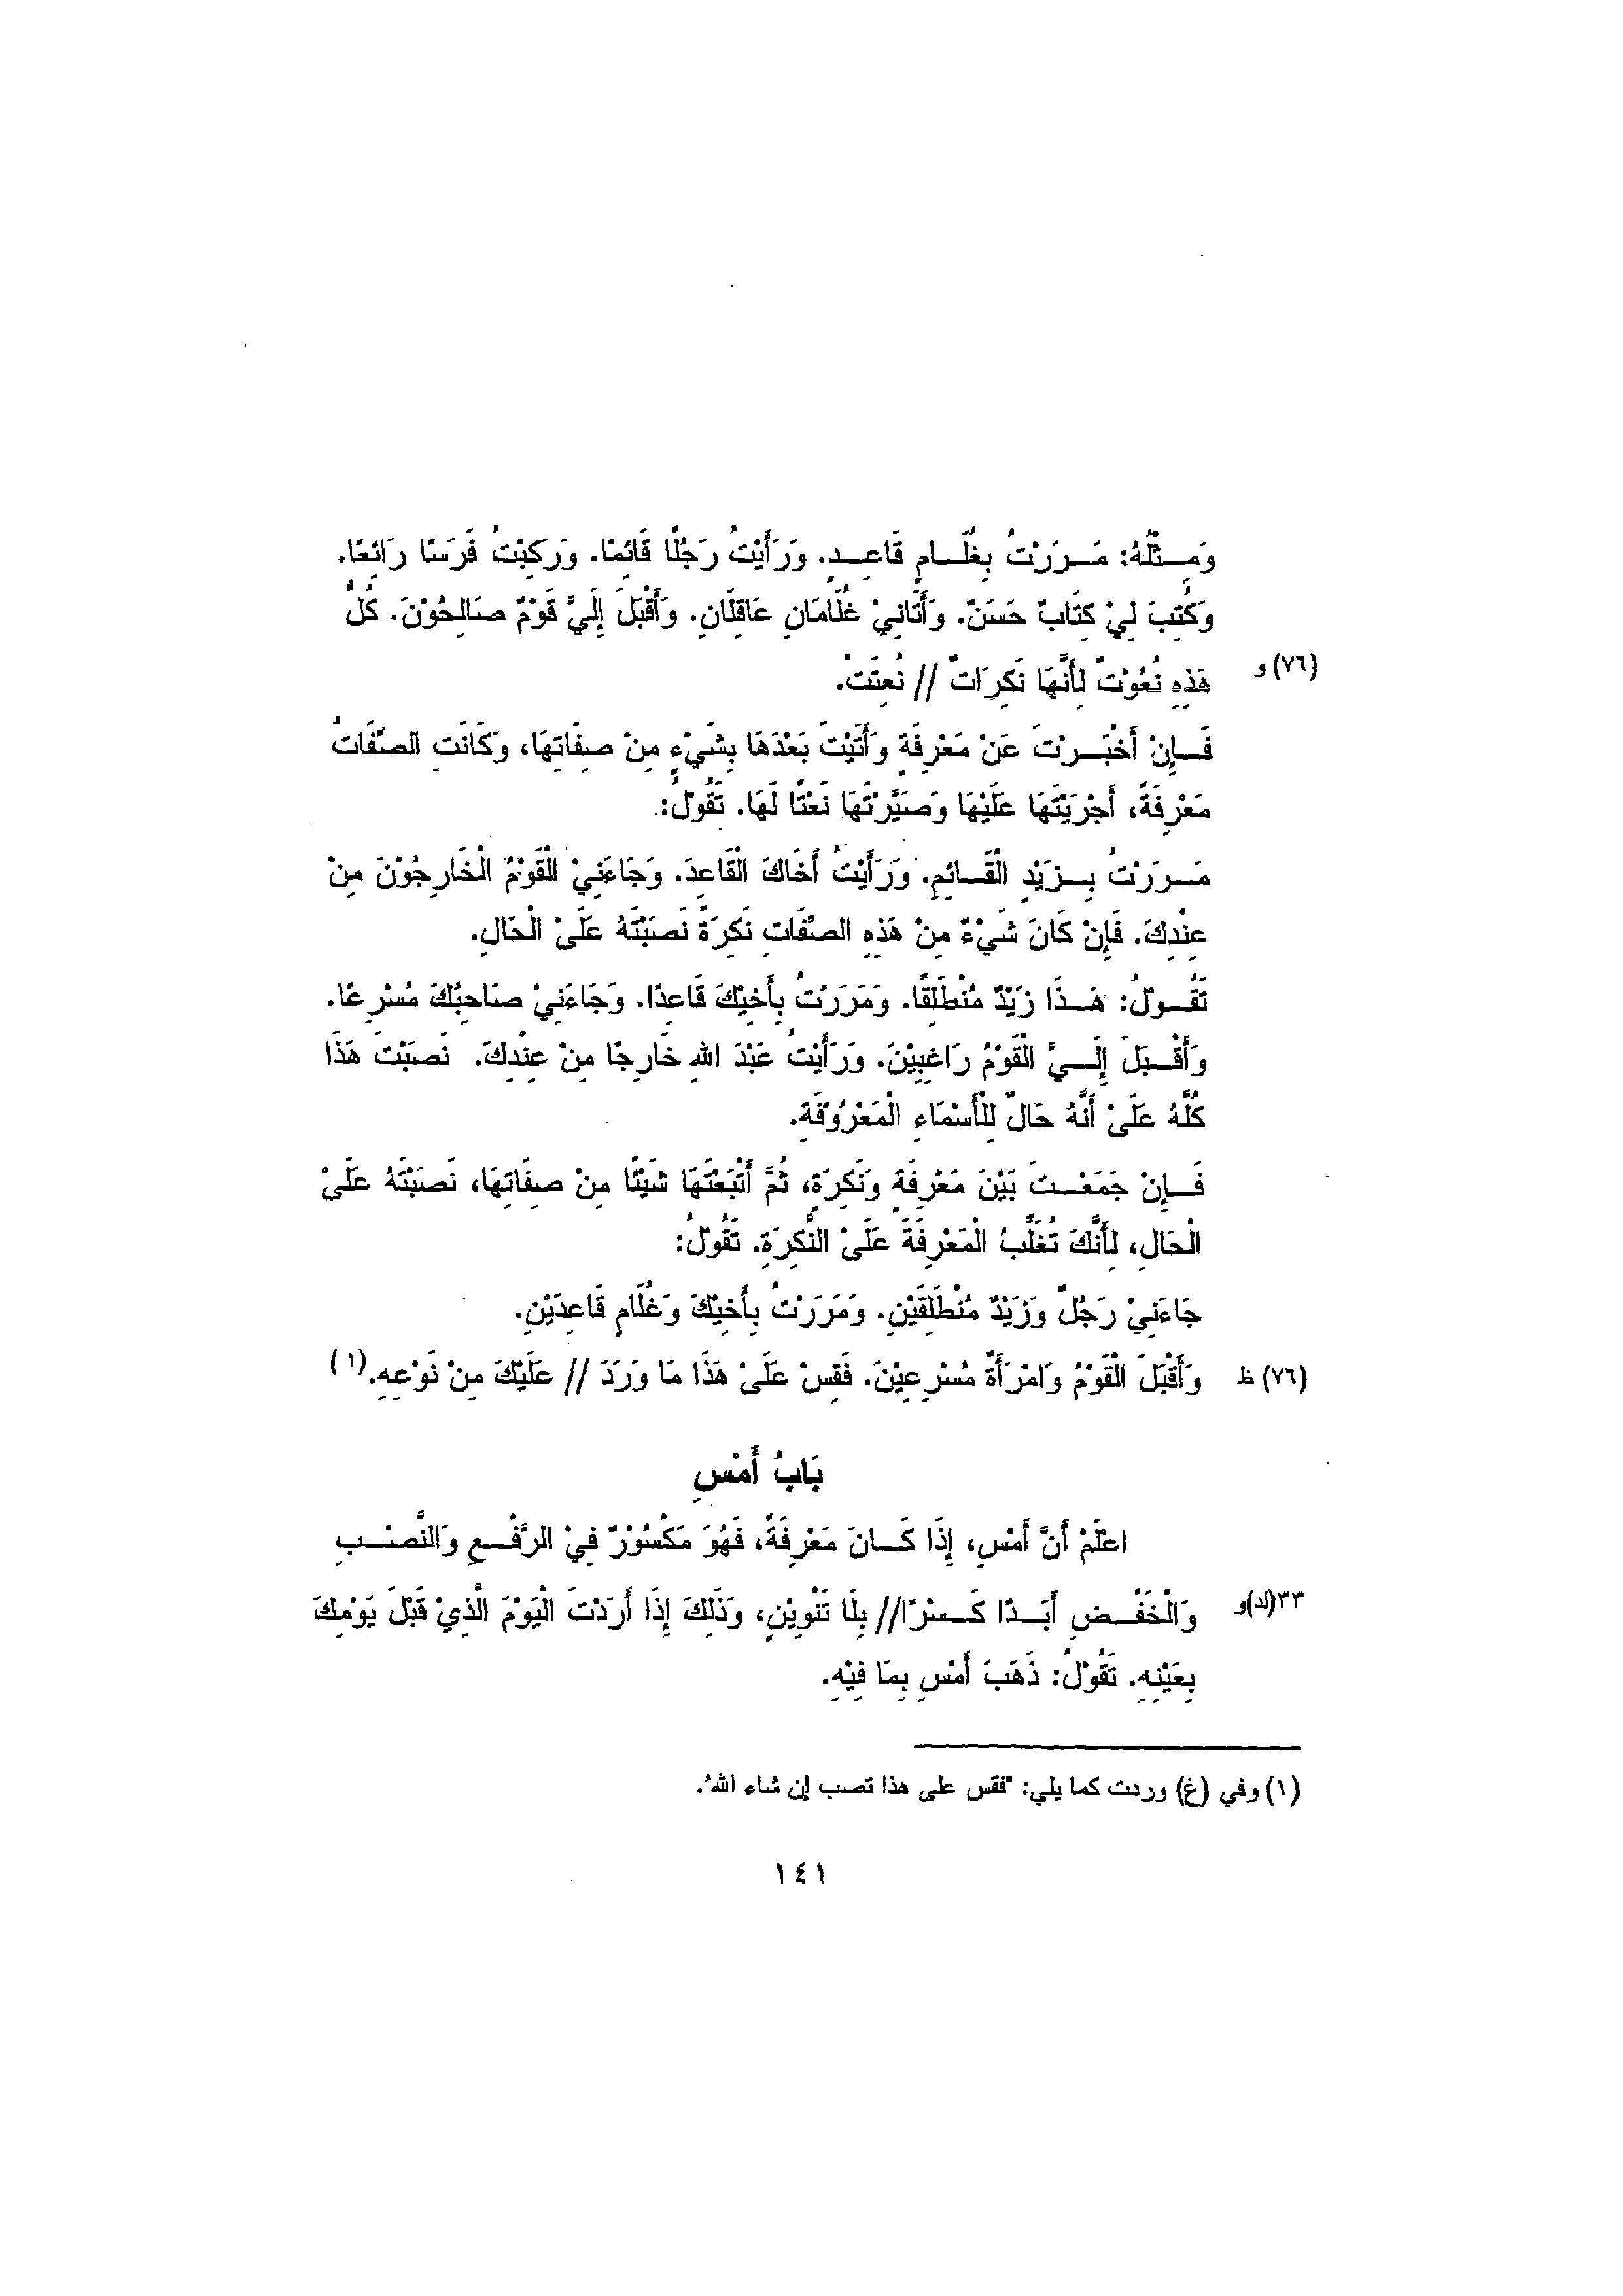 وَمِثْلُهُ: مَرَرْتُ بِغُلَامٍ قَاعِدٍ. وَرَأَيْتُ رَجُلًا قَائِمًا. وَرَكِبْتُ فَرَسًا رَائِعًا.
وَكُتِبَ لِيْ كِتَابٌ حَسَنٌ. وَأَتَانِيْ غُلَامَانِ عَاقِلَانِ. وَأَقْبَلَ إِلَيَّ قَوْمٌ صَالِحُوْنَ. كُلُّ
هَذِهِ نُعُوْتٌ لِأَنَّهَا نَكِرَاتٌ // نُعِتَتْ. (٧٦) و
فَإِنْ أَخْبَرْتَ عَنْ مَعْرِفَةٍ وَأَتَيْتَ بَعْدَهَا بِشَيْءٍ مِنْ صِفَاتِهَا، وَكَانَتِ الصِّفَاتُ
مَعْرِفَةً، أَجْرَيْتَهَا عَلَيْهَا وَصَيَّرْتَهَا نَعْتًا لَهَا. تَقُوْلُ:
مَرَرْتُ بِزَيْدٍ الْقَائِمِ. وَرَأَيْتُ أَخَاكَ الْقَاعِدَ. وَجَاءَنِيْ الْقَوْمُ الْخَارِجُوْنَ مِنْ
عِنْدِكَ. فَإِنْ كَانَ شَيْءٌ مِنْ هَذِهِ الصِّفَاتِ نَكِرَةً نَصَبْتَهُ عَلَىْ الْحَالِ.
تَقُوْلُ: هَذَا زَيْدٌ مُنْطَلِقًا. وَمَرَرْتُ بِأَخِيْكَ قَاعِدًا. وَجَاءَنِيْ صَاحِبُكَ مُسْرِعًا.
وَأَقْبَلَ إِلَيَّ الْقَوْمُ رَاغِبِيْنَ. وَرَأَيْتُ عَبْدَ اللهِ خَارِجًا مِنْ عِنْدِكَ. نَصَبْتَ هَذَا
كُلَّهُ عَلَىْ أَنَّهُ حَالٌ لِلْأَسْمَاءِ الْمَعْرُوْفَةِ.
فَإِنْ جَمَعْتَ بَيْنَ مَعْرِفَةٍ وَنَكِرَةٍ، ثُمَّ أَتْبَعْتَهَا شَيْئًا مِنْ صِفَاتِهَا، نَصَبْتَهُ عَلَىْ
الْحَالِ، لِأَنَّكَ تُغَلِّبُ الْمَعْرِفَةَ عَلَىْ النَّكِرَةِ. تَقُوْلُ:
جَاءَنِيْ رَجُلٌ وَزَيْدٌ مُنْطَلِقَيْنِ. وَمَرَرْتُ بِأَخِيْكَ وَغُلَامٍ قَاعِدَيْنِ.
وَأَقْبَلَ الْقَوْمُ وَامْرَأَةٌ مُسْرِعِيْنَ. فَقِسْ عَلَىْ هَذَا مَا وَرَدَ // عَلَيْكَ مِنْ نَوْعِهِ.(١) (٧٦) ظ
بَابُ أَمْسِ
اعْلَمْ أَنَّ أَمْسِ، إِذَا كَانَ مَعْرِفَةً، فَهُوَ مَكْسُوْرٌ فِيْ الرَّفْعِ وَالنَّصْبِ
وَالْخَفْضِ أَبَدًا كَسْرًا// بِلَا تَنْوِيْنٍ، وَذَلِكَ إِذَا أَرَدْتَ الْيَوْمَ الَّذِيْ قَبْلَ يَوْمِكَ ٣٣(لد)و
بِعَيْنِهِ. تَقُوْلُ: ذَهَبَ أَمْسِ بِمَا فِيْهِ.
(١) وفي (غ) وردت كما يلي: "فقس على هذا تصب إن شاء الله".
١٤١